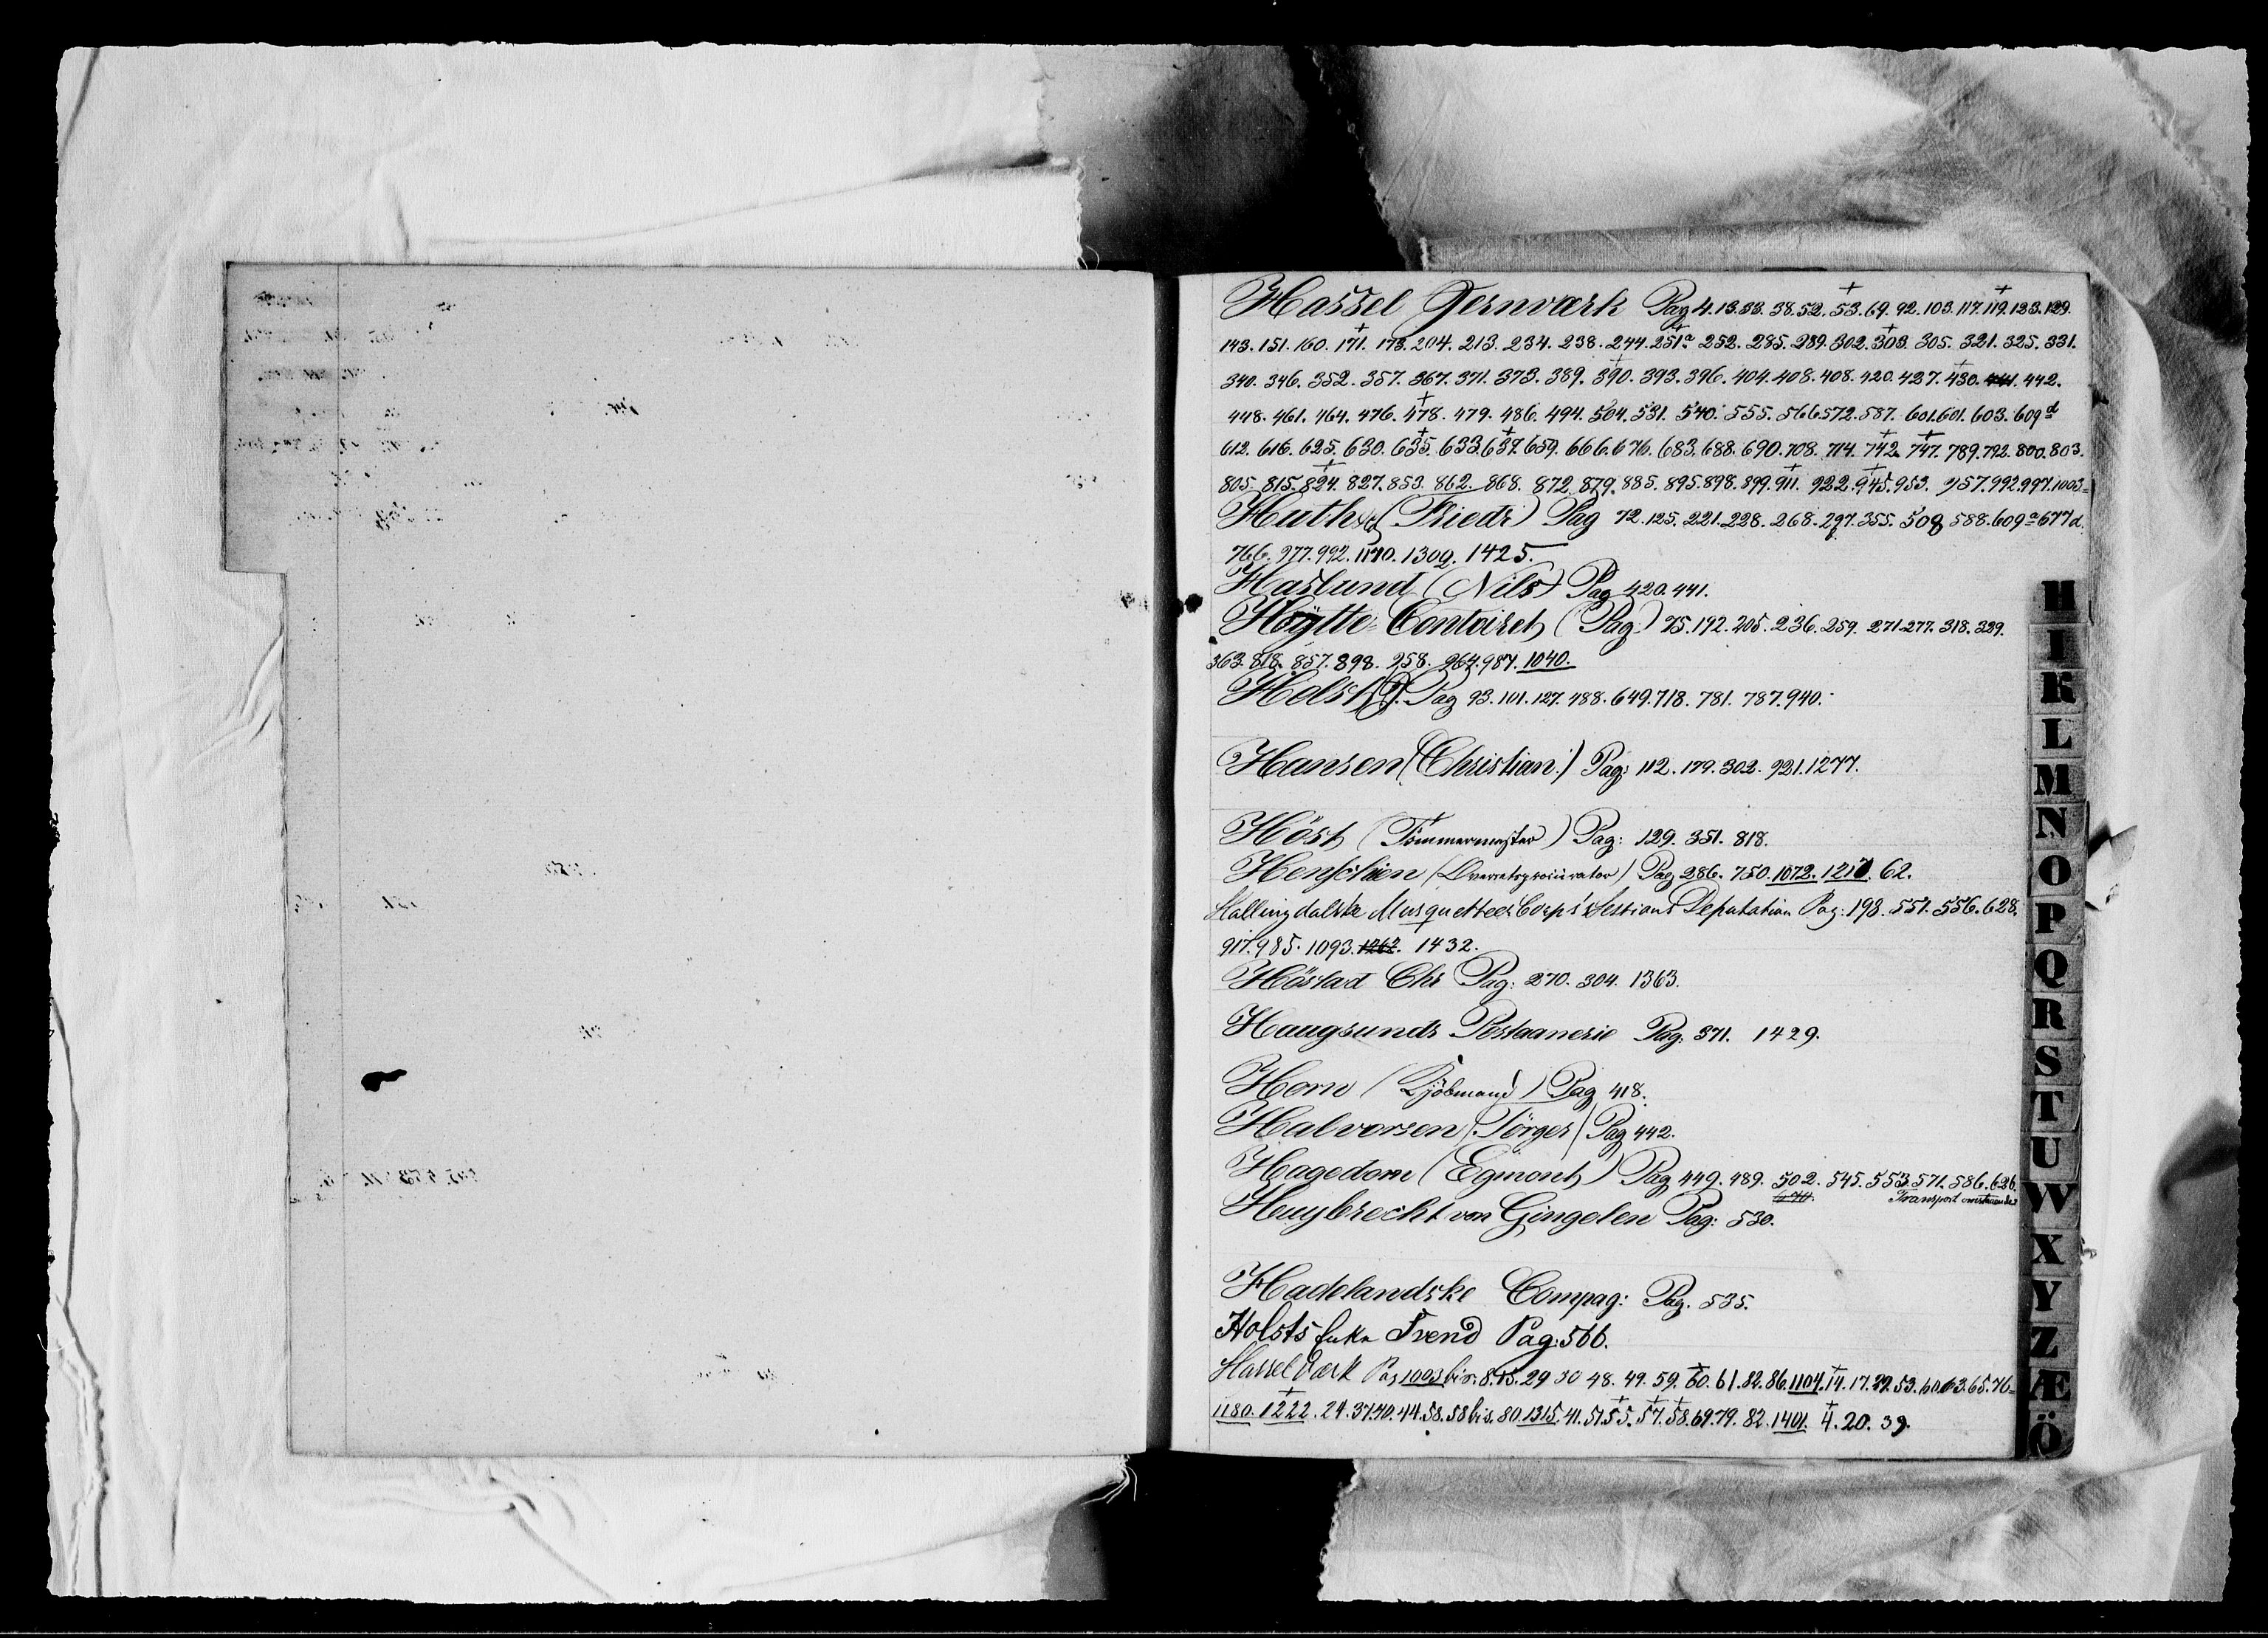 Hassel Jernværk Pag 4. 13. 33. 38. 52. 53. 69. 92. 103. 117. 119. 123. 129.
143. 151. 160. 171. 173. 204. 213. 234. 238. 244. 251a. 252. 285. 289. 302. 303. 305. 321. 325. 331.
340. 346. 352. 357. 367. 371. 373. 389. 390. 393. 396. 404. 408. 408. 420. 427. 430. 441. 442.
448. 461. 464. 476. 478. 479. 486. 494. 504. 531. 540. 555. 566. 572. 587. 601. 601. 603. 609d
612. 616. 625. 630. 635. 633. 637. 659. 666. 676. 683. 688. 690. 708. 714. 742. 747. 789. 792. 800. 803.
805. 815. 824. 827. 853. 862. 868. 872. 879. 885. 895. 898. 899. 911. 922. 945. 953. 957. 992. 997. 1003=
Huth (Friedr) Pag 72. 125. 221. 228. 268. 297. 355. 508 588. 609a 677d.
766. 977. 992. 1170. 1309. 1425.
Haslund (Nils) Pag 420. 441.
Høytte-Contoiret (Pag:) 75. 192. 205. 236. 259. 271. 277. 318. 329.
363. 818. 857. 898. 258. 264. 987. 1040.
Holst P. Pag 93. 101. 127. 488. 649. 718. 781. 787. 940.
Hansen (Christian) Pag: 112. 179. 302. 921. 1277.
Höst (Tömmermester) Pag: 129. 351. 818.
Henschien (Overretsprocurator) Pag 286. 750. 1072. 1217. 62.
Hallingdalske Musquetteer Corps's Sessions Deputation Pag: 193. 551. 556. 628.
917. 985. 1093. 1262. 1432.
Höstad Chr Pag: 270. 304. 1363.
Haugsunds Postaanerie Pag: 371. 1429.
Horn (Kjöbmand) Pag 418.
Halvorsen (Törger) Pag 442.
Hagedorn (Egmont) Pag 449. 489. 502. 545. 553. 571. 586. 626.
Transport
Huybrecht van Gingelen Pag: 530.
Hadelandske Compag: Pag. 535.
Holsts Enke Svend Pag: 566.
Hassel Værk Pag 1003 bis. 8. 15. 29 30 48. 49. 59. 60. 61. 82. 86. 1104. 14. 17. 29. 53. 60. 63. 65. 76=
1180. 1222. 24. 37. 40. 44. 58. 58 bis. 80. 1315. 41. 51. 55. 57. 58. 69. 79. 82. 1401. 4. 20. 39.
H
I
K
L
M
N
O
P
Q
R
S
T
U
W
X
Y
Z
Æ
Ö